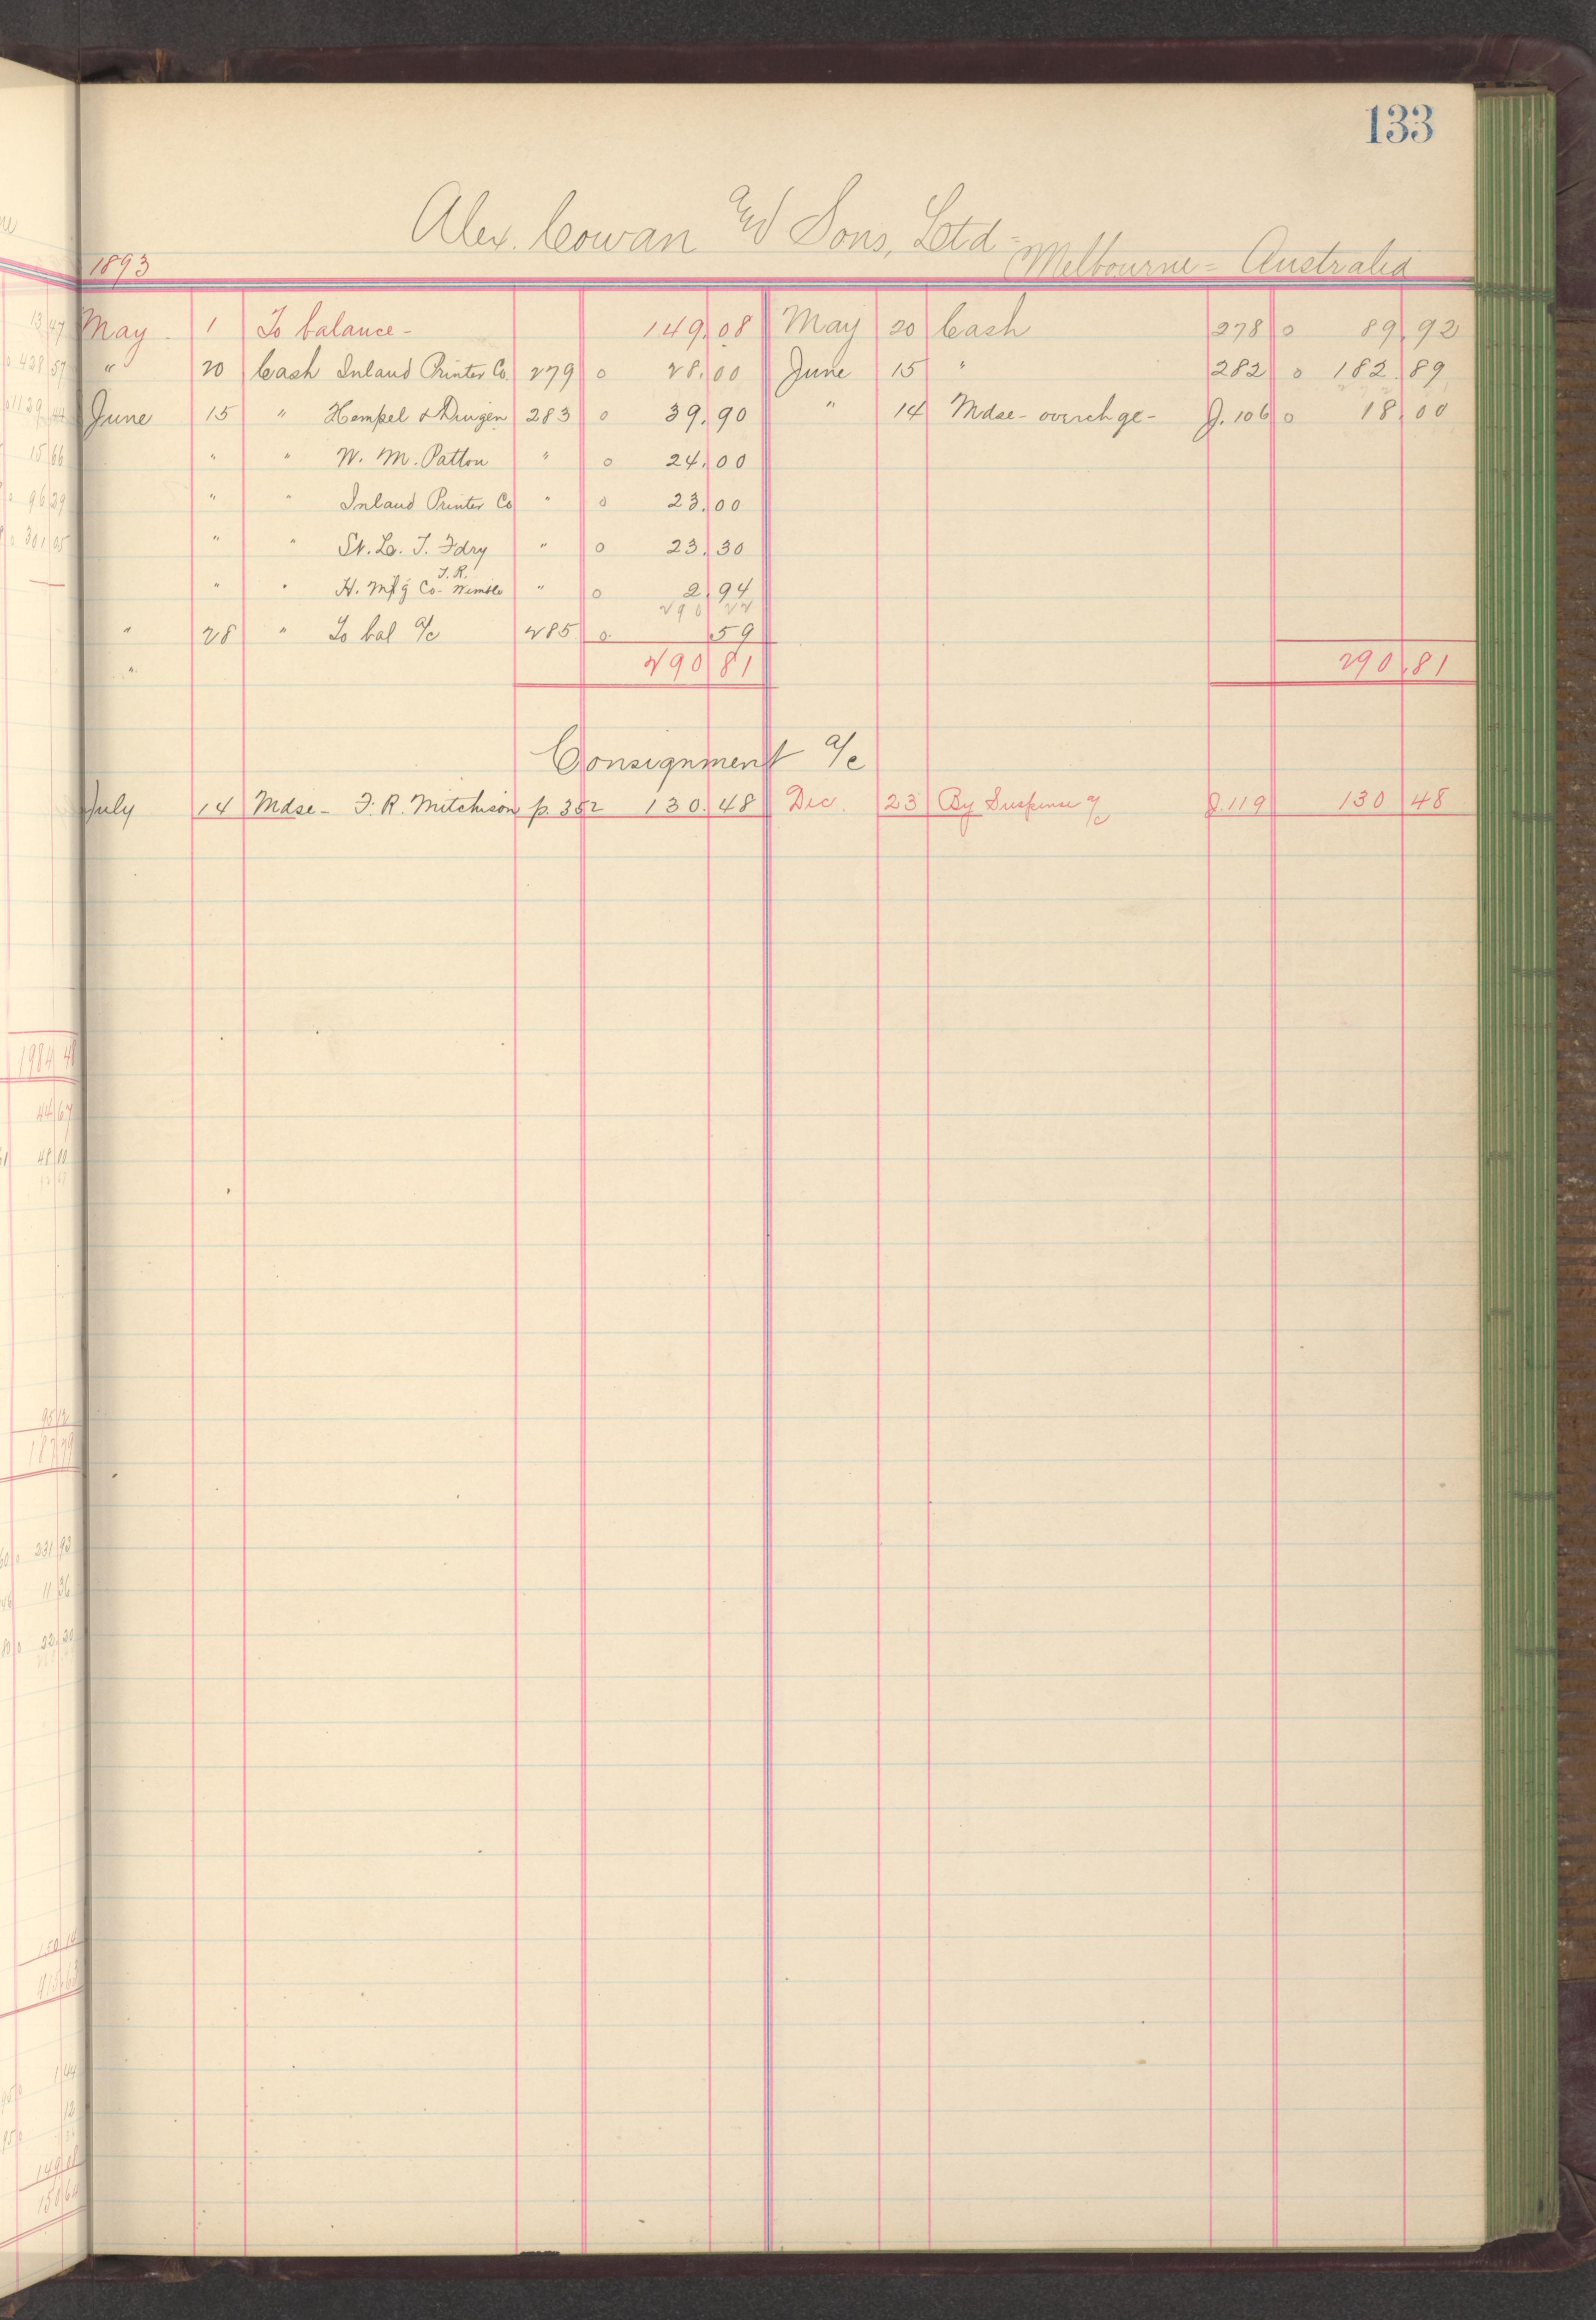 133
Alex. Cowan and Sons, Ltd =
1893 Melbourne = Australia
May 1 To balance - 149.08 May 20 Cash 278 o 89.92
" 20 Cash Inland Printer Co. 279 o 28.00 June 15 " 282 o 182.89
June 15 " Hempel & Dingen 283 o 39.90 " 14 Mdse - overchge - J. 106 o 18.00
" " W. M. Patton " o 24.00
" " Inland Printer Co " o 23.00
" " St. Lo. T. Fdry " o 23.30
T. R.
" " H. Mfg Co - Wimble " o 2.94
290 22
" 28 " To bal a/c 285 o 59
" 290 81 290.81
Consignment a/c
July 14 Mdse - F. R. Mitchison p. 352 130.48 Dec. 23 By Suspense a/c J. 119 130 48
1984 48
44 67
48 00
187 79
231 93
11 36
22 20
150 14
1 44
12
149 08
150 64